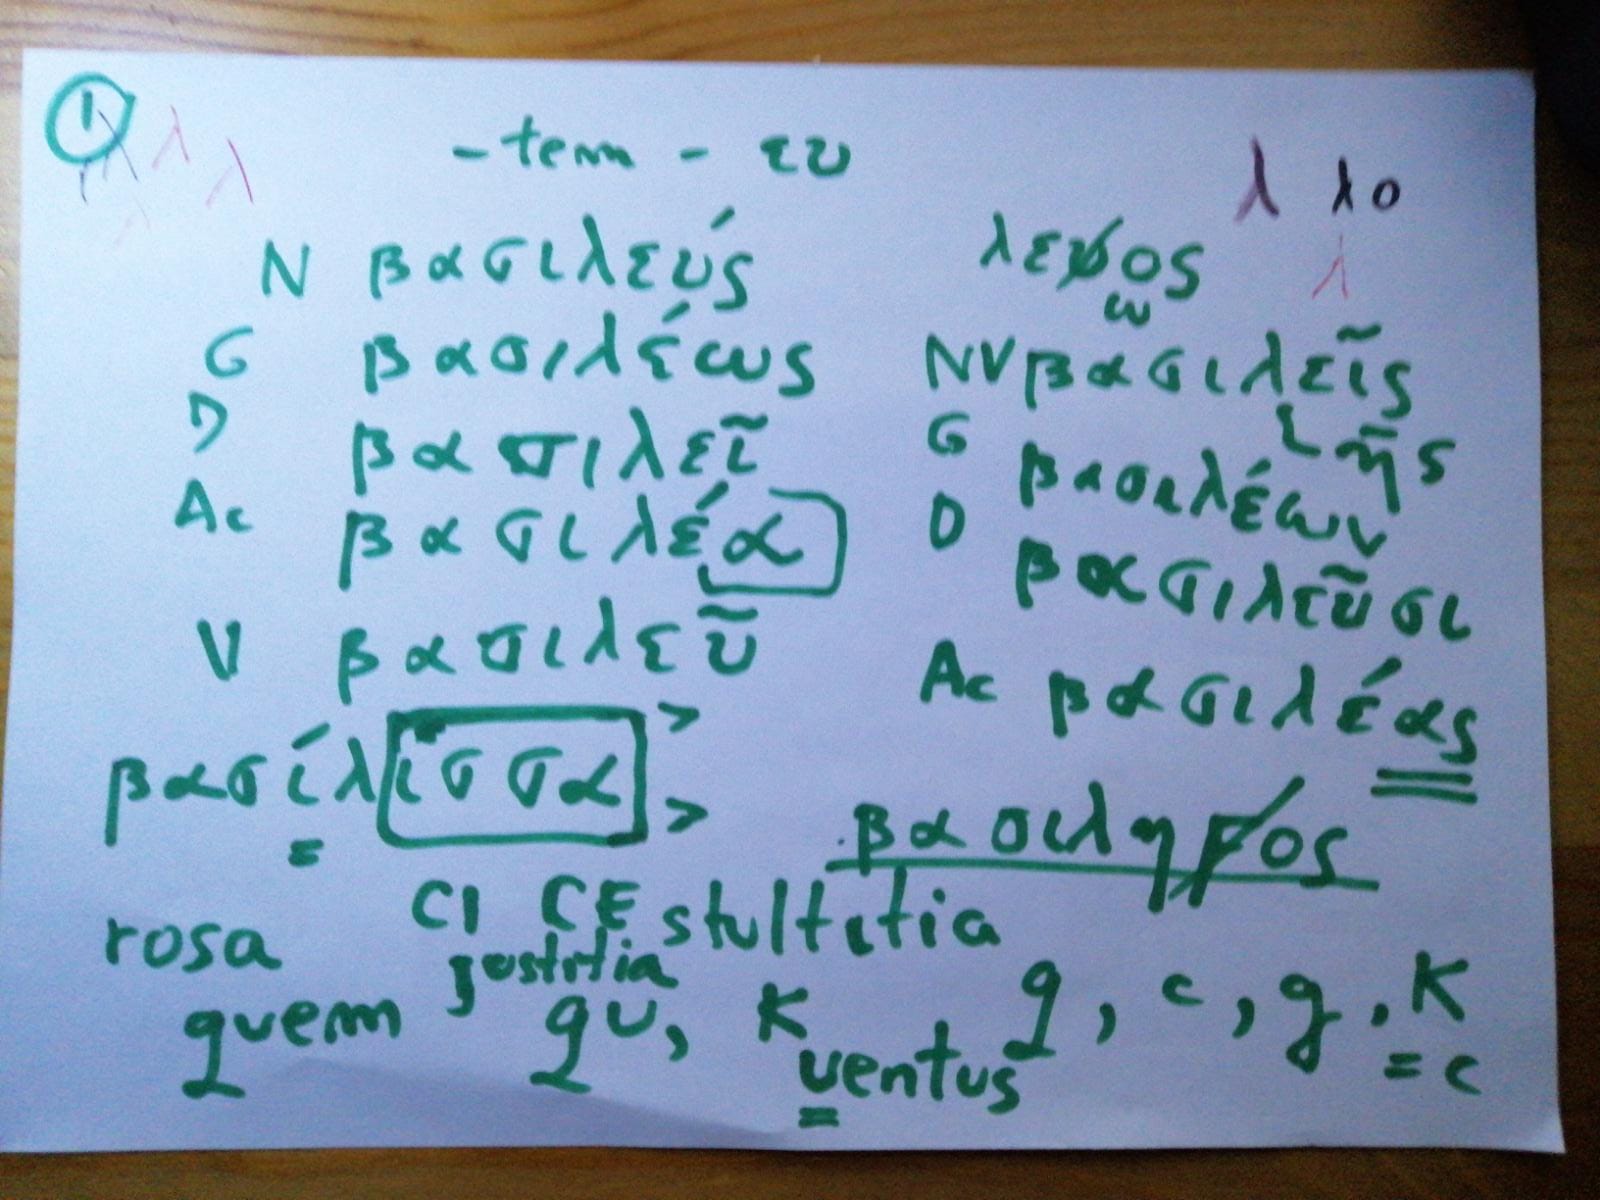 ①
λ λ λ
-tem - ευ
λ λο
λ
Ν βασιλεύς
G βασιλέως
D βασιλεῖ
Ac βασιλέα
V βασιλεῦ
ω
NV βασιλεῖς
ῆς
G βασιλέων
D βασιλεῦσι
Ac βασιλέας
βασίλισσα > >
βασιληϝος
CI CE stultitia
rosa justitia
quem qu, K q, c, g, K
ventus = c